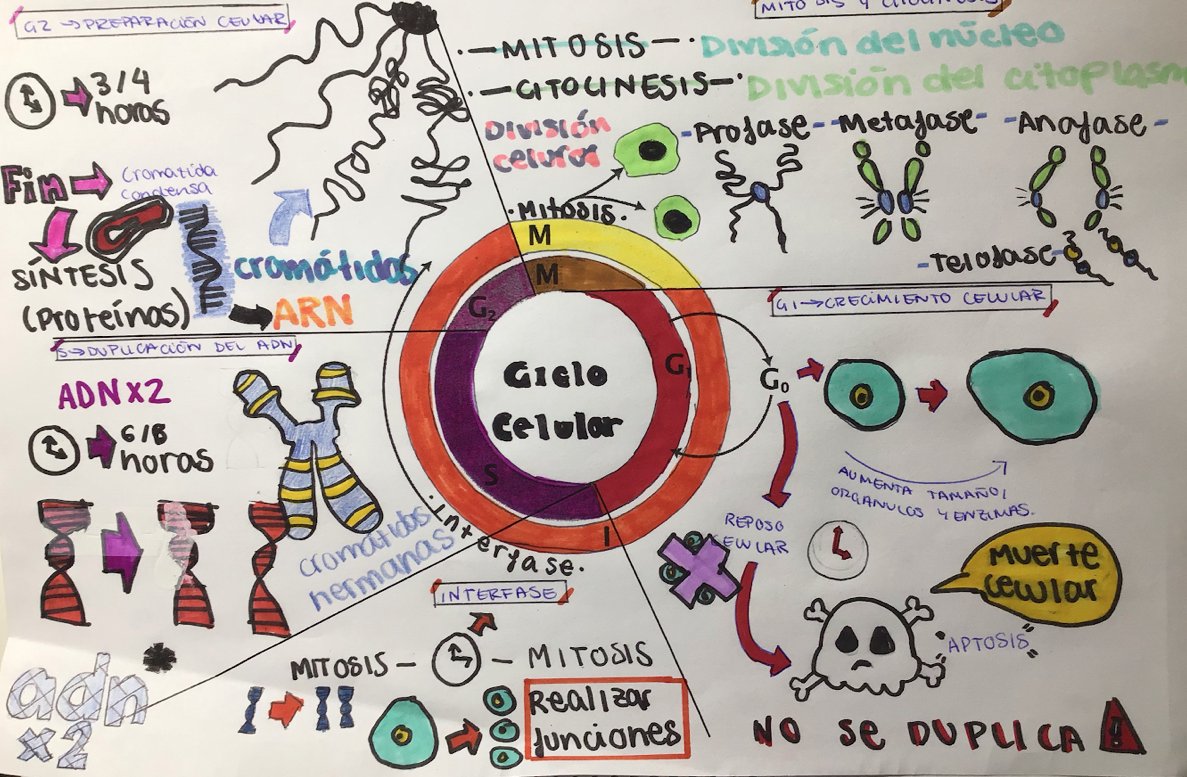 G2 → PREPARACIÓN CELULAR
3/4
horas
Fin
Cromatida
Condensa
SÍNTESIS
(Proteínas)
cromátidas
ARN
MITOSIS Y CITOCINESIS
MITOSIS
División del núcleo
CITOCINESIS
División del citoplasm
División
celular
Mitosis.
-Profase-
-Metafase-
-Anafase-
-Telofase-
S → DUPLICACIÓN DEL ADN
ADN X2
6/8
horas
cromátidas
hermanas
adn*
x2
M
M
G2
G1
S
I
Ciclo
Celular
interfase.
G0
G1 → CRECIMIENTO CELULAR
AUMENTA TAMAÑO,
ORGANULOS Y ENZIMAS.
REPOSO
CELULAR
MUERTE
celular
"APTOSIS"
NO SE DUPLICA !
INTERFASE
MITOSIS — — MITOSIS
Realizar
funciones